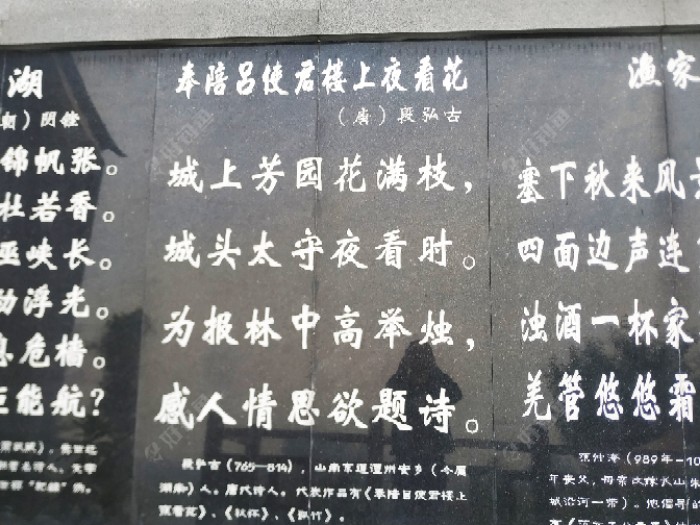 湖
）阴铿
锦帆张。
杜若香。
巫峡长。
动浮光。
息危樯。
能航？
奉陪吕使君楼上夜看花
（唐）段弘古
城上芳园花满枝，
城头太守夜看时。
为报林中高举烛，
感人情思欲题诗。
段弘古（765—814），山南东道澧州安乡（今属
湖南）人。唐代诗人。代表作品有《奉陪吕使君楼上
夜看花》、
渔家
塞下秋来风
四面边声连
浊酒一杯家
羌管悠悠霜
范仲淹（989年-10